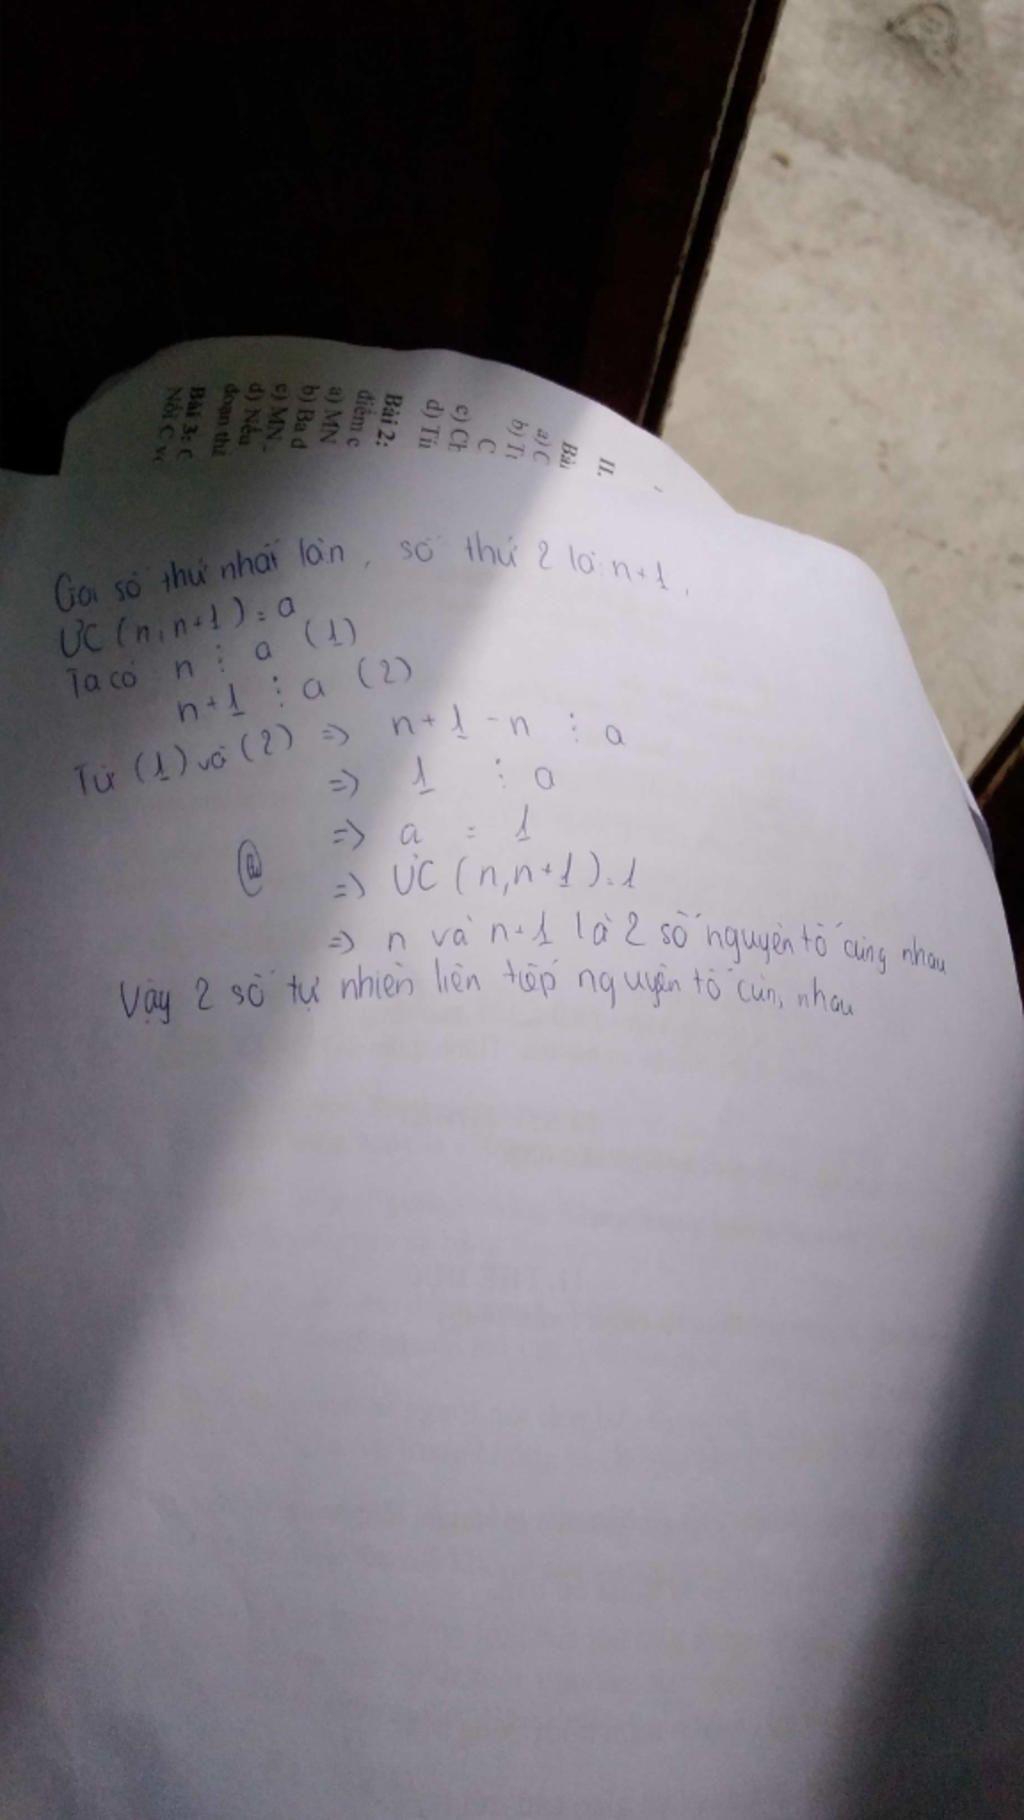 Gọi số thứ nhất là n, số thứ 2 là: n+1,
ƯC (n, n+1) = a
Ta có n ⋮ a (1)
n+1 ⋮ a (2)
Từ (1) và (2) => n+1-n ⋮ a
=> 1 ⋮ a
=> a = 1
=> ƯC (n, n+1) = 1
=> n và n+1 là 2 số nguyên tố cùng nhau
Vậy 2 số tự nhiên liên tiếp nguyên tố cùn, nhau
II.
Bài
a) C
b) Tì
C
c) Ch
d) Tín
Bài 2:
điểm c
a) MN
b) Ba đ
c) MN -
d) Nếu
đoạn thẳ
Bài 3: C
Nối C v